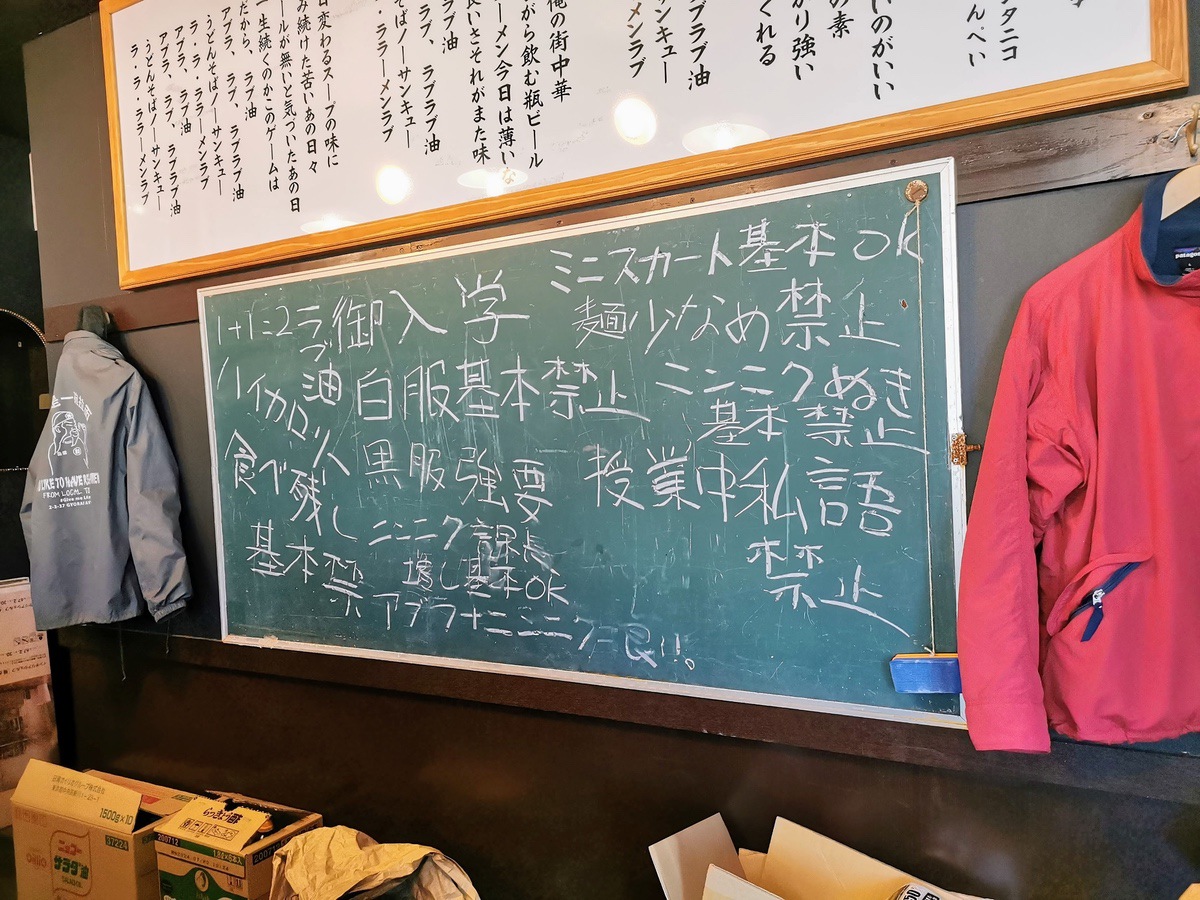 タニコ
んぺい
いのがいい
がり強い
の素
くれる
ラブラブ油
サンキュー
ーメンラブ
俺の街中華
がら飲む瓶ビール
ーメン今日は薄いな
良いさそれがまた味
ラブ油
ラブ、ラブラブ油
そばノーサンキュー
・ララーメンラブ
日変わるスープの味に
み続けた苦いあの日々
ールが無いと気づいたあの日
一生続くのかこのゲームは
だから、ラブ油
アブラ、ラブ、ラブラブ油
うどんそばノーサンキュー
ラ・ラ・ララーメンラブ
アブラ、ラブ油
アブラ、ラブ、ラブラブ油
うどんそばノーサンキュー
ラ・ラ・ララーメンラブ
1+1=2ラブ油
ハイカロリ人
食べ残し
基本禁
御入学
白服基本禁止
黒服強要
ニンニク課長
壊し基本OK
アブラ+ニンニク=良!!。
ミニスカート基本OK
麺少なめ禁止
ニンニクぬき
基本禁止
授業中私語
禁止
FROM LOCAL TO
patagonia
1500g×10
37224
ニッコー
サラダ油
SALAD OIL
らっきょう酢
200712